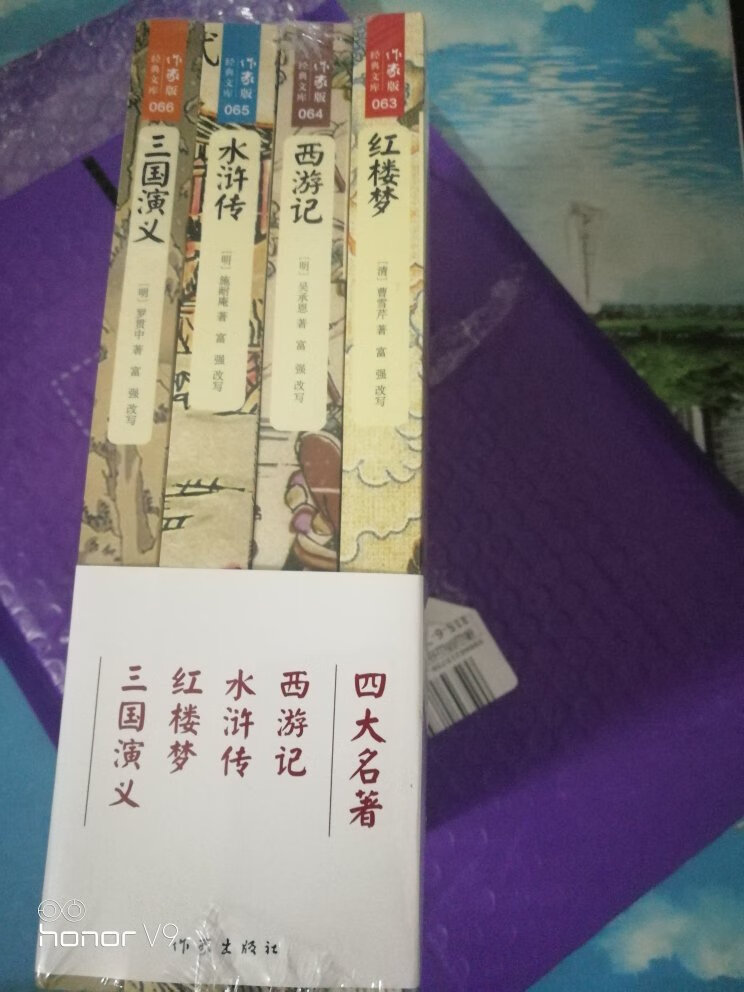 作家版
经典文库
066
三国演义
[明] 罗贯中 著 富 强 改写
作家版
经典文库
065
水浒传
[明] 施耐庵 著 富 强 改写
作家版
经典文库
064
西游记
[明] 吴承恩 著 富 强 改写
作家版
经典文库
063
红楼梦
[清] 曹雪芹 著 富 强 改写
四大名著
西游记
水浒传
红楼梦
三国演义
作家出版社
honor V9